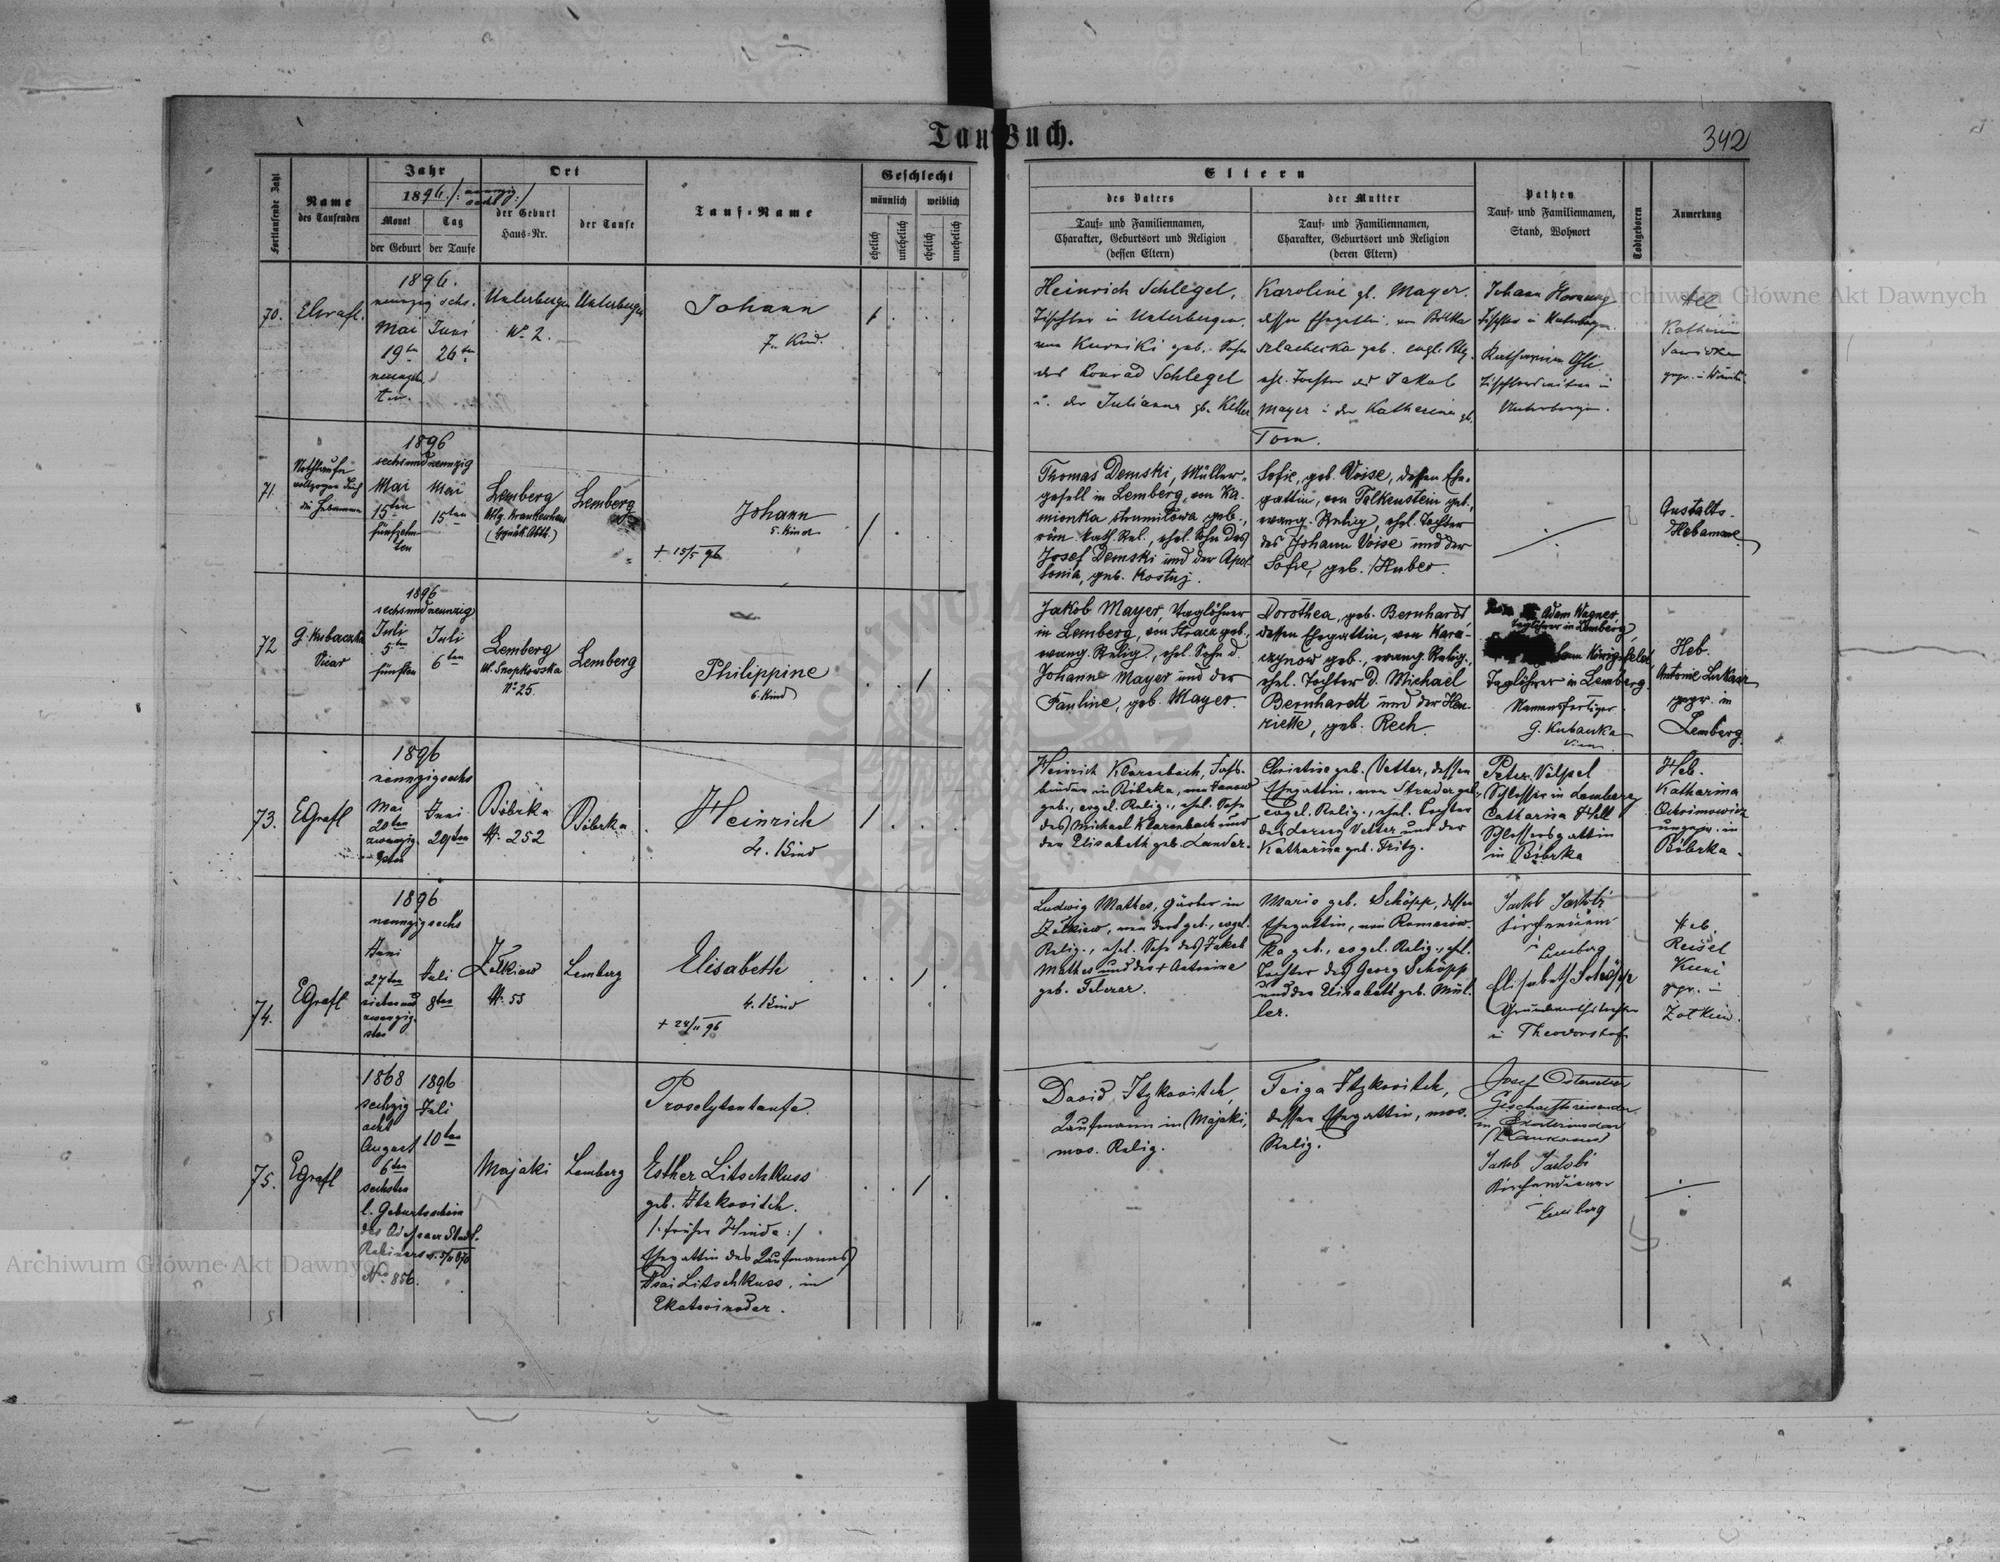 Tauf-Buch.
342
Fortlaufende Zahl
Name
des Taufenden
Jahr
1896
Monat
Tag
der Geburt
der Taufe
Ort
der Geburt
Haus-Nr.
der Taufe
Tauf-Name
Geschlecht
männlich
weiblich
ehelich
unehelich
ehelich
unehelich
Eltern
des Vaters
Tauf- und Familiennamen,
Charakter, Geburtsort und Religion
(dessen Eltern)
der Mutter
Tauf- und Familiennamen,
Charakter, Geburtsort und Religion
(deren Eltern)
Pathen
Tauf- und Familiennamen,
Stand, Wohnort
Todtgeboren
Anmerkung
70.
EGrafl.
1896.
neunzig sechs.
Mai
19ten
Juni
26ten
Unterbergen
No 2.
Unterbergen
Johann
7. Kind.
Heinrich Schlegel,
Tischler in Unterbergen,
von Kurniki geb. Sohn
des Konrad Schlegel
u. der Julianna gb. Keller
Karoline gb. Mayer.
dessen Ehegattin
szlachecka geb. evgl. Rlg.
ehl. Tochter des Jakob
Mayer u. der Katharina gb.
Torn.
Johann Hornung
Tischler in Unterbergen.
Katharina
Unterbergen.
Katharina
71.
Nothtaufe
vollzogen durch
die Hebamme
1896
sechsundneunzig
Mai
15ten
fünfzehn-
ten
Mai
15ten
Lemberg
Allg. Krankenhaus
(Gynäk. Abth.)
Lemberg
Johann
5. Kind
+ 15/5 96
Thomas Demski, Müller-
gesell in Lemberg, von Ka-
mionka strumiłowa geb.,
röm. kath. Rel., ehel. Sohn des
Josef Demski und der Apol-
lonia, geb. Kostuj.
Sofie, geb. Voise, dessen Ehe-
gattin, von Falkenstein geb.,
evang. Relig., ehel. Tochter
des Johann Voise und der
Sofie, geb. Huber.
Anstalts-
Hebamme
72
G. Kubaczka
Vicar
1896
sechsundneunzig
Juli
5ten
fünften
Juli
6ten
Lemberg
Ul. Snopkowska
No 25.
Lemberg
Philippine
6. Kind
Jakob Mayer, Taglöhner
in Lemberg, von Stracz geb.,
evang. Relig., ehel. Sohn d.
Johann Mayer und der
Pauline, geb. Mayer.
Dorothea, geb. Bernhardt
dessen Ehegattin, von Kara-
czynow geb., evang. Relig.,
ehel. Tochter d. Michael
Bernhardt und der Hen-
riette, geb. Rech.
Adam Wagner
Taglöhner in Lemberg,
Königsfeld
Taglöhner in Lemberg.
Namensfertiger
G. Kubaczka
Vicar
Heb.
Antonie Lukasz
gepr. in
Lemberg.
73.
EGrafl
1896
neunzigsechs
Mai
20ten
zwanzig-
sten
Juni
29ten
Bóbrka
N. 252
Bóbrka.
Heinrich
4. Kind
Heinrich Klarenbach, Fass-
binder in Bóbrka, von
geb., evgel. Relig., ehel. Sohn
des Michael Klarenbach und
der Elisabeth geb. Lander.
Christine geb. Vetter, dessen
Ehegattin, von Strader geb.,
evgel. Relig., ehel. Tochter
des Lorenz Vetter und der
Katharina geb. Fritz.
Peter Völpel
Schlosser in Lemberg
Catharina Hell
Schlossersgattin
in Bóbrka
Heb.
Katharina
Ochrimowicz
ungepr. in
Bóbrka.
74.
EGrafl
1896
neunzigsechs
Juni
27ten
sieben und
zwanzig-
sten
Juli
8ten
Żołkiew
N. 55
Lemberg
Elisabeth
4. Kind
+ 24/11 96
Ludwig Mathes, Gärber in
Żołkiew, von dort geb., evgel.
Relig., ehel. Sohn des Jakob
Mathes und der + Antonina
geb. Felerar.
Marie geb. Schöpp, dessen
Ehegattin, von Romanow-
ka geb., evgel. Relig., ehel.
Tochter des Georg Schöpp
und der Elisabeth geb. Mül-
ler.
Jakob Jakobi
Kirchendiener
in Lemberg
Elisabeth Schöpp
Grundwirthstochter
in Theodorshof
Heb.
Reisel
Kuni
gpr. in
Żołkiew.
75.
EGrafl
1868
sechzig
acht
August
6ten
sechsten
l. Geburtsschein
des Odessaer Stadt-
Rabiners
No 856.
1896
Juli
10ten
Majaki
Lemberg
Proselytentaufe.
Esther Litschkuss
geb. Itzkovitch.
/: früher Hinda :/
Ehegattin des Kaufmannes
Isai Litschkuss, in
Ekaterinodar.
David Itzkovitch,
Kaufmann in Majaki,
mos. Relig.
Feiga Itzkovitch,
dessen Ehegattin, mos.
Relig.
Josef
Geschäftsreisender
in Ekaterinodar
(Kaukasus)
Jakob Jakobi
Kirchendiener
in Lemberg
Archiwum Główne Akt Dawnych
Archiwum Główne Akt Dawnych